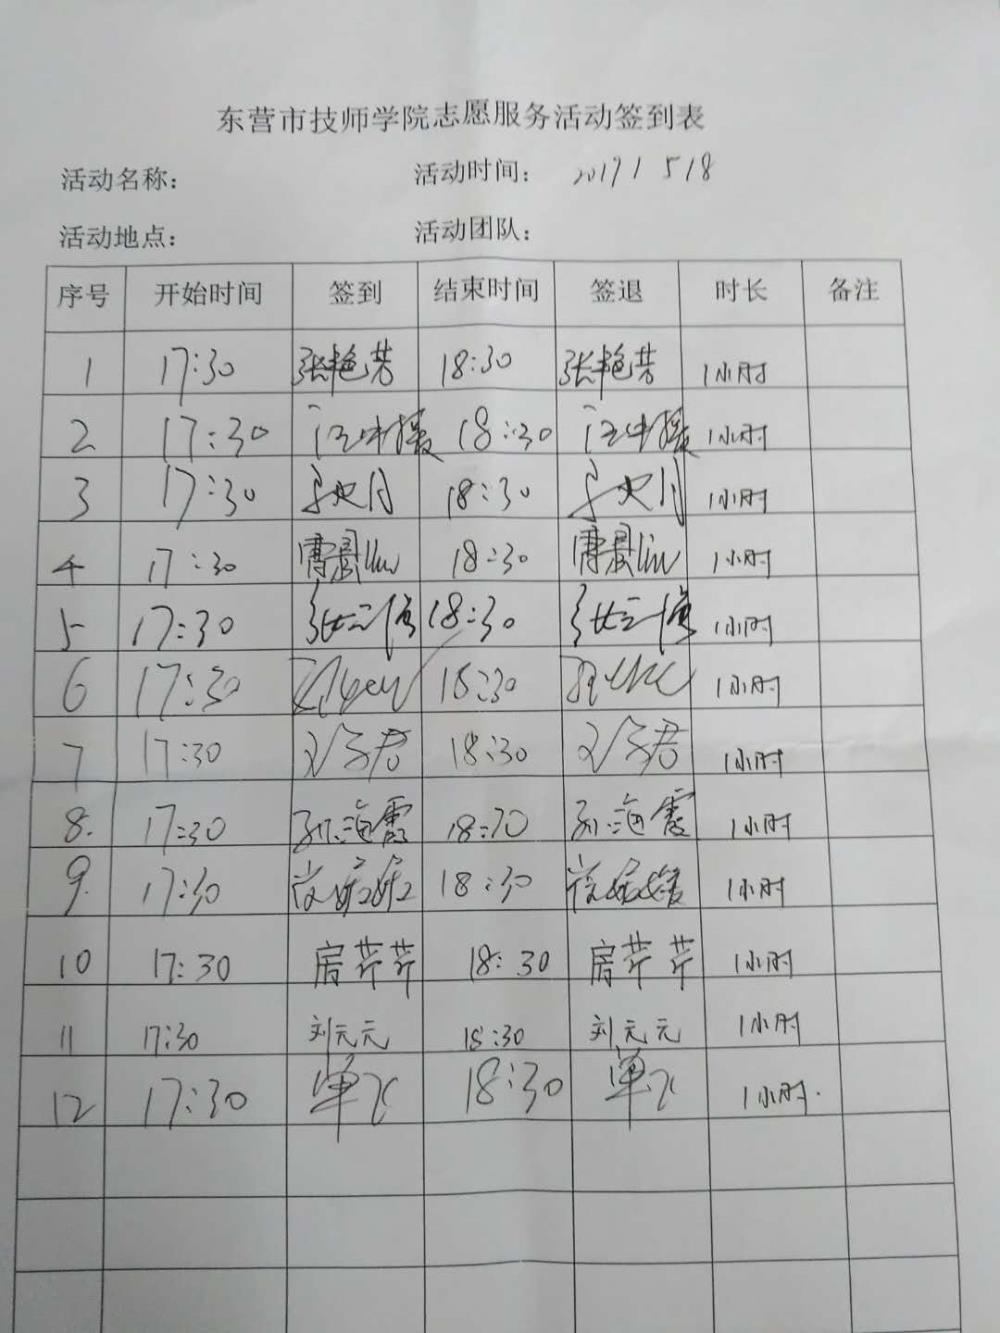 东营市技师学院志愿服务活动签到表
活动名称： 活动时间：
活动地点： 活动团队：
序号 开始时间 签到 结束时间 签退 时长 备注
1 17:30 张艳芳 18:30 张艳芳 1小时
2 17:30 18:30 1小时
3 17:30 18:30 1小时
4 17:30 18:30 1小时
5 17:30 18:30 1小时
6 17:30 18:30 1小时
7 17:30 刘子君 18:30 刘子君 1小时
8. 17:30 孙海霞 18:30 孙海霞 1小时
9. 17:30 18:30 1小时
10 17:30 房芹芹 18:30 房芹芹 1小时
11 17:30 刘元元 18:30 刘元元 1小时
12 17:30 单飞 18:30 单飞 1小时.